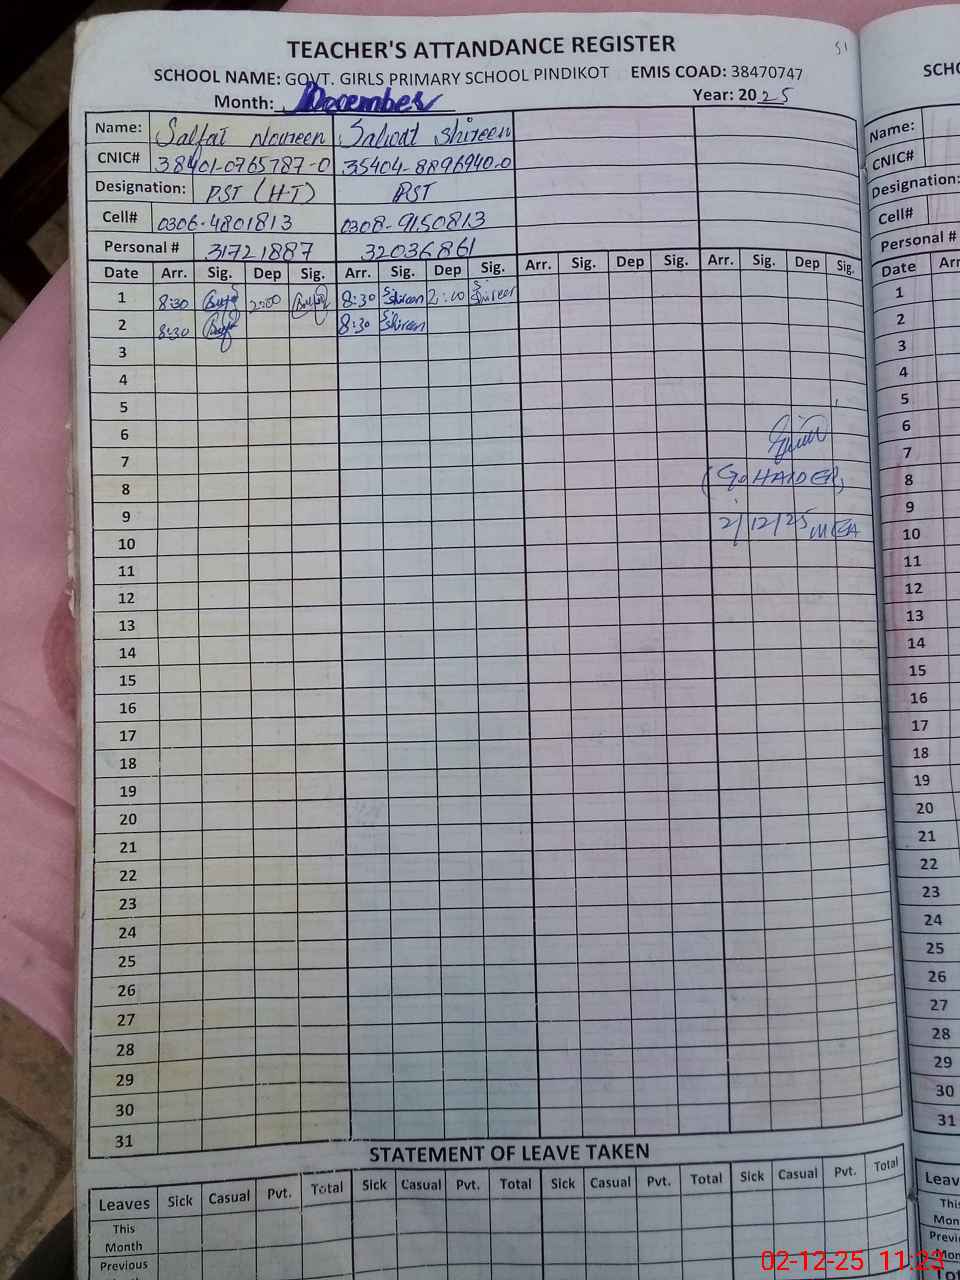 TEACHER'S ATTANDANCE REGISTER
51
SCHOOL NAME: GOVT. GIRLS PRIMARY SCHOOL PINDIKOT EMIS COAD: 38470747
Month: December Year: 2025
Name: Noreen Shireen
CNIC# 38401-0765787-0 35404-8896940-0
Designation: PST (H-T) PST
Cell# 0306-4801813 0308-9150813
Personal # 31721887 32036861
Date Arr. Sig. Dep Sig. Arr. Sig. Dep Sig. Arr. Sig. Dep Sig. Arr. Sig. Dep Sig.
1 8:30 2:00 8:30 Shireen 2:00 Shireen
2 8:30 8:30 Shireen
3
4
5
6
7
8 (G. HAIDER)
9
10 2/12/25 MEA
11
12
13
14
15
16
17
18
19
20
21
22
23
24
25
26
27
28
29
30
31
STATEMENT OF LEAVE TAKEN
Leaves Sick Casual Pvt. Total Sick Casual Pvt. Total Sick Casual Pvt. Total Sick Casual Pvt. Total
This
Month
Previous
SCHO
Name:
CNIC#
Designation:
Cell#
Personal #
Date Arr
1
2
3
4
5
6
7
8
9
10
11
12
13
14
15
16
17
18
19
20
21
22
23
24
25
26
27
28
29
30
31
Leav
This
Mon
Previo
Mon
Tot
02-12-25 11:23